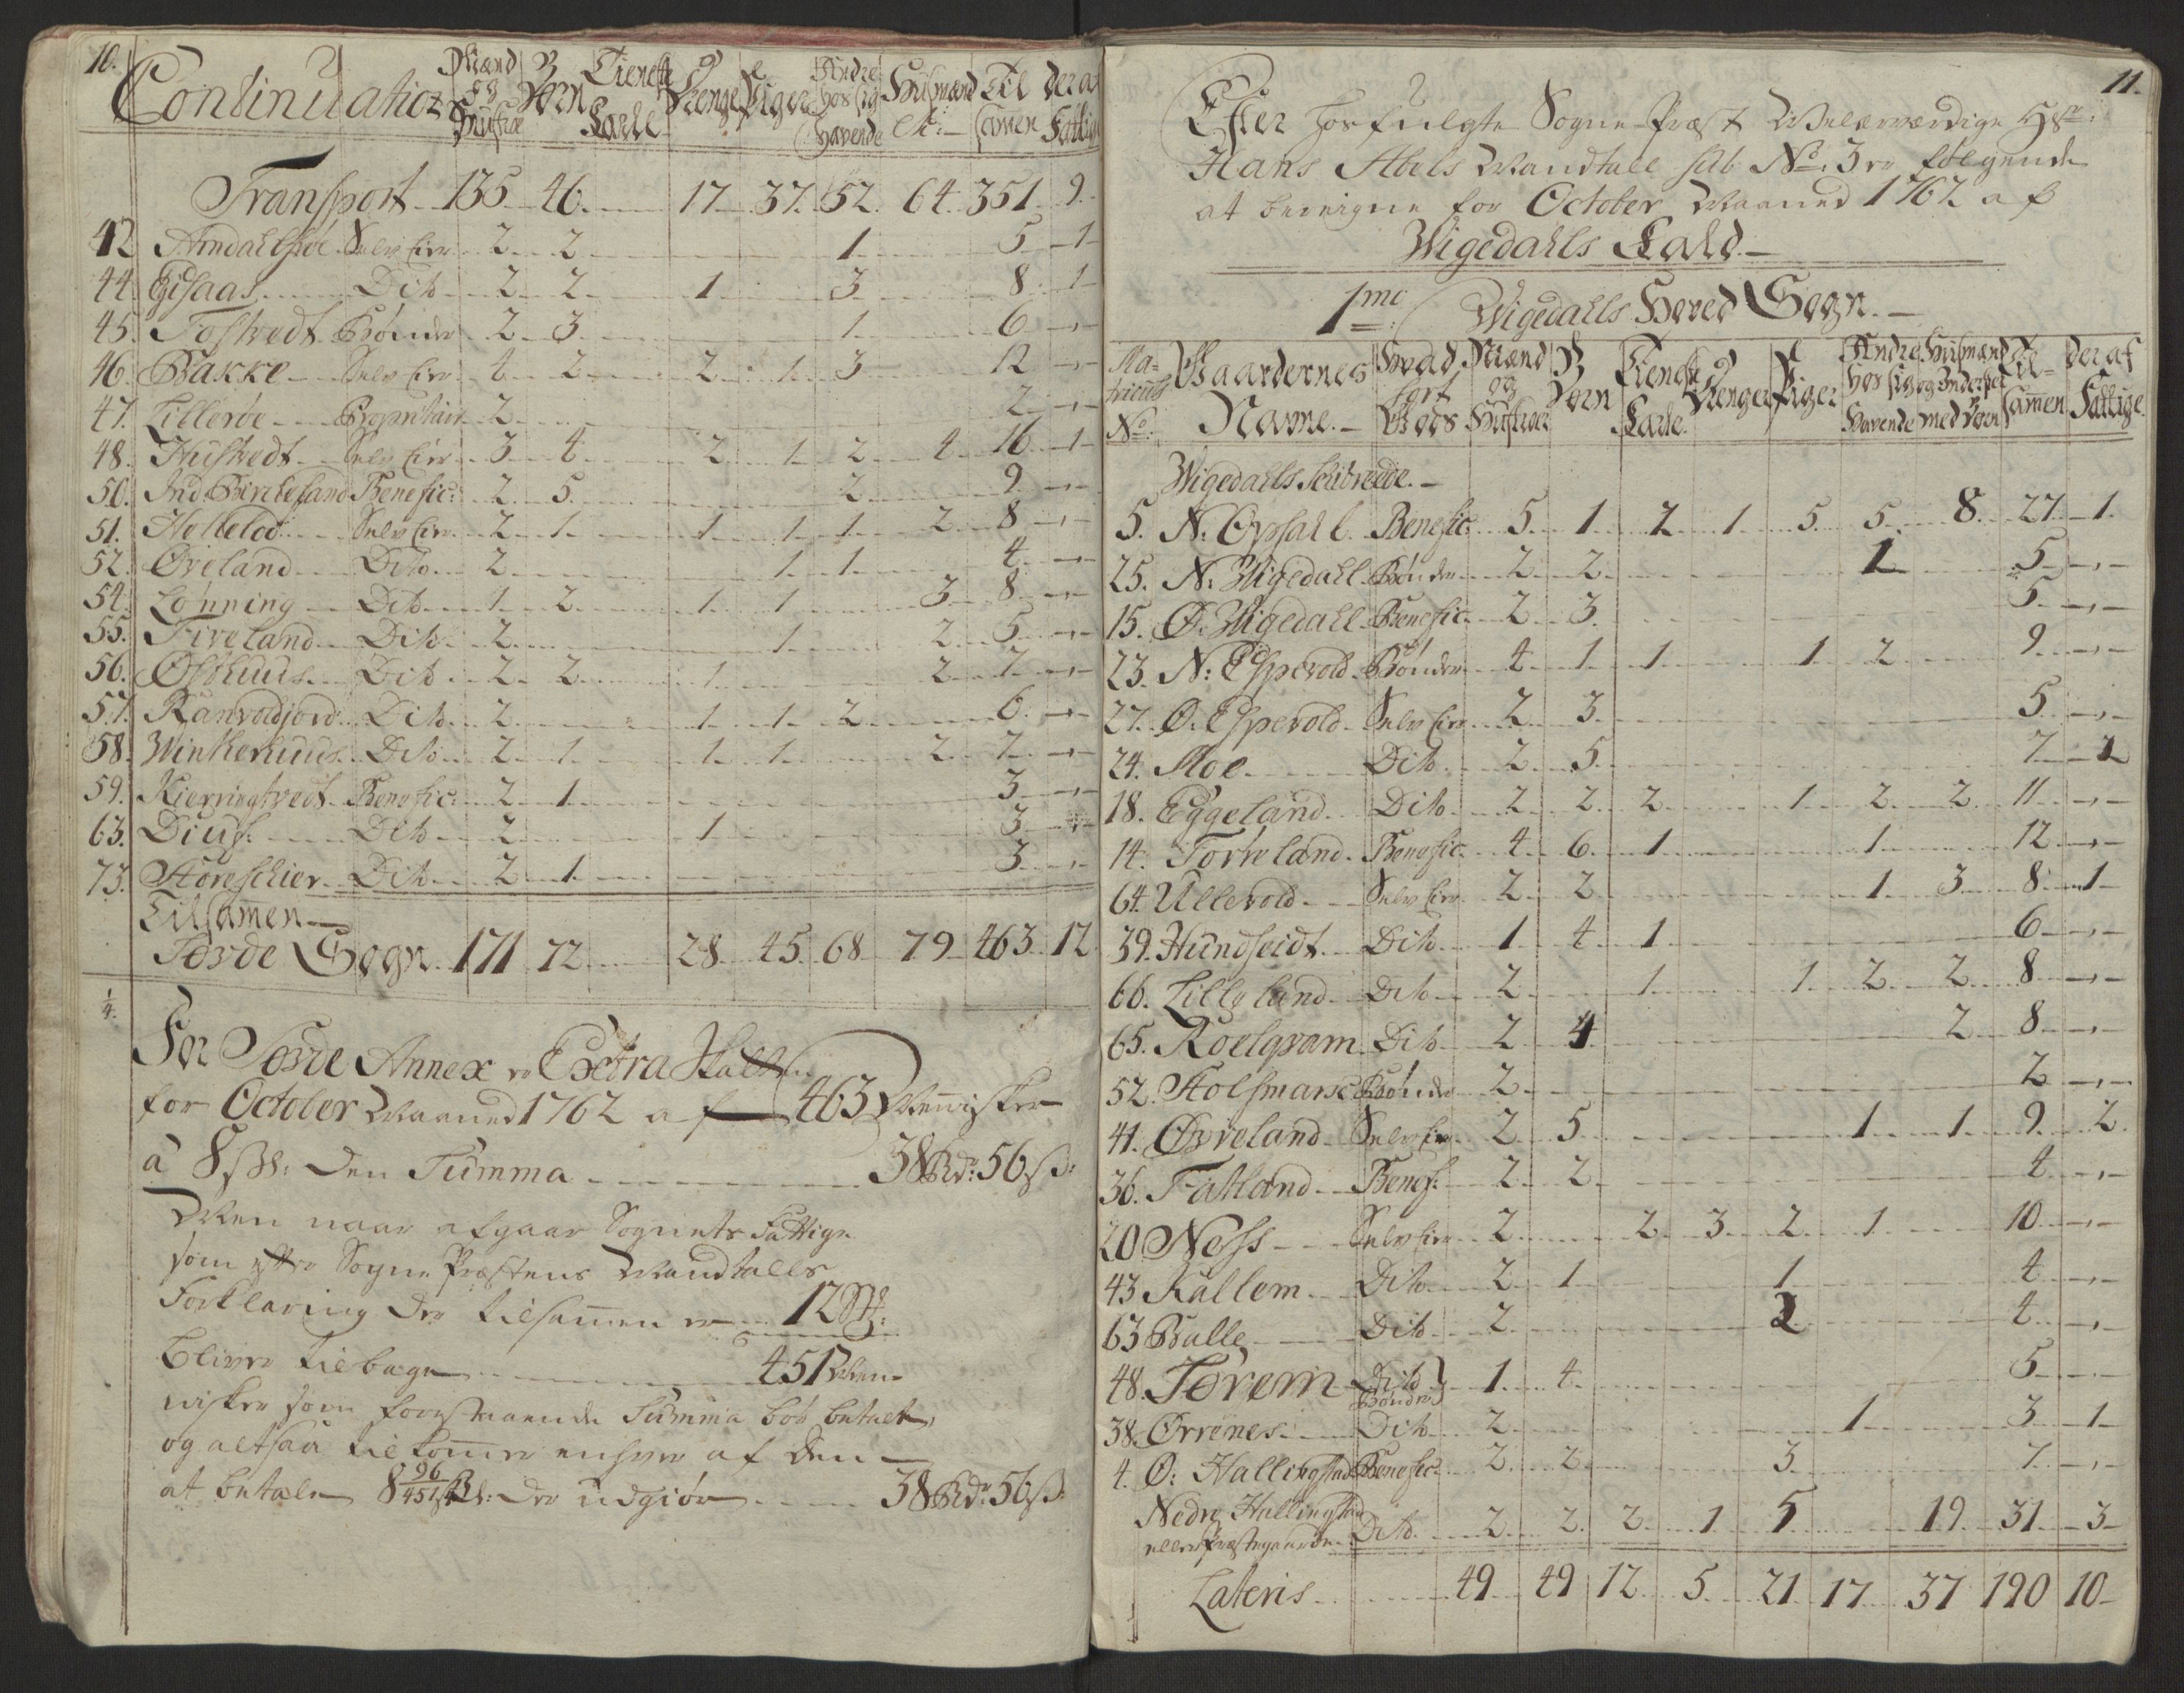 10.
Continuation Mænd og Hustrue Børn Tieneste Karle Drenge Piger Andre hos sig Havende Huusmænd etc: Til samen der af Fattige
Transport 135 46 17 37 52 64 351 9
42 Amdahlshøe Selv Eier 2 2 1 5 1
44. Egesaas Dito 2 2 1 3 8 1
45. Tostvedt Bønder 2 3 1 6 -"-
46. Bakke Selv Eier 4 2 2 1 3 12 -"-
47. Lillerøe Proprietair 2 2 -"-
48. Hustvedt Selv Eier 3 4 2 1 2 4 16 1
50. Ind. Bircheland Benefic: 2 5 2 9 -"-
51. Hollelod Selv Eier 2 1 1 1 1 2 8 -"-
52. Øreland Dito 2 1 1 4 -"-
54. Lønning Dito 1 2 1 1 3 8 -"-
55. Fireland Dito 2 1 2 5 -"-
56. Østhuus Dito 2 2 1 2 7 -"-
57. Ranvoldjord Dito 2 1 1 2 6 -"-
58. Winterhuus Dito 2 1 1 1 2 7 -"-
59. Kierringtvedt Benefic: 2 1 3 -"-
63. Diuf: Dito 2 1 3 -"-
73. Støreschier Dito 2 1 3 -"-
Tilsamen
Førde Sogn 171 72 28 45 68 79 463 12
1/4.
For Førde Annex er Extra Skatten
for October Maaned 1762 af 463 Mennisker
à 8 sk: den Summa 38 Rd: 56 s:
Men naar afgaar Sognets Fattige
som efter Sogne Præstens Mandtalls
Forklaring der tilsammen er 12 St:
bliver tilbage 451 Men-
nisker som forestaaende Summa bør betale,
og altsaa tilkommer enhver af dem
at betale 8 96/451 sk: der udgiør 38 Rd: 56 s:
11.
Efter hosfulgte Sogne-Præst Welærværdige Hr:
Hans Abels Mandtall sub No: 3 er følgende
at beregne for October Maaned 1762 af
Wigedahls Kald
1mo: Wigedahls Hoved Sogn.
Ma-triculs No: Gaardernes Navne. Hvad sort Gods Mænd og Hustruer Børn Tieneste Karle Drenger Piger Andre hos sig Havende Huusmænd og Inderster med Børn Til-samen der af Fattige
Wigedahls Schibreede.
5. N: Opsahl Benefic: 5 1 2 1 5 5 8 27 1
25. N: Wigedahl Bønder 2 2 1 5 -"-
15. Ø: Wigedahl Benefic 2 3 5 -"-
23. N: Espevold Bønder 4 1 1 1 2 9 -"-
27. Ø. Espevold Selv Eier 2 3 5 -"-
24. Moe Dito 2 5 7 1
18. Eggeland Dito 2 2 2 1 2 2 11 -"-
14. Torreland Benefic: 4 6 1 1 12 -"-
64. Ullevold Selv Eier 2 2 1 3 8 1
39. Hundseidt Dito 1 4 1 6 -"-
66. Lilleland Dito 2 1 1 2 2 8 -"-
65. Roelqvam Dito 2 4 2 8 -"-
52. Holsmarc Bønder 2 2 -"-
41. Øvreland Selv Eier 2 5 1 1 9 2
36. Fatland Benef: 2 2 4 -"-
20 Ness Selv Eier 2 2 3 2 1 10 -"-
43 Kallem Dito 2 1 1 4 -"-
63 Balle Dito 2 2 4 -"-
48. Førem Dito Bønder 1 4 5 -"-
38. Ørrenes Dito 2 1 3 1
4. Ø: Hallingstad Benefic: 2 2 3 7 -"-
Nedre Hallingstad
eller Præstegaarden Dito 2 2 2 1 5 19 31 3
Lateris 49 49 12 5 21 17 37 190 10